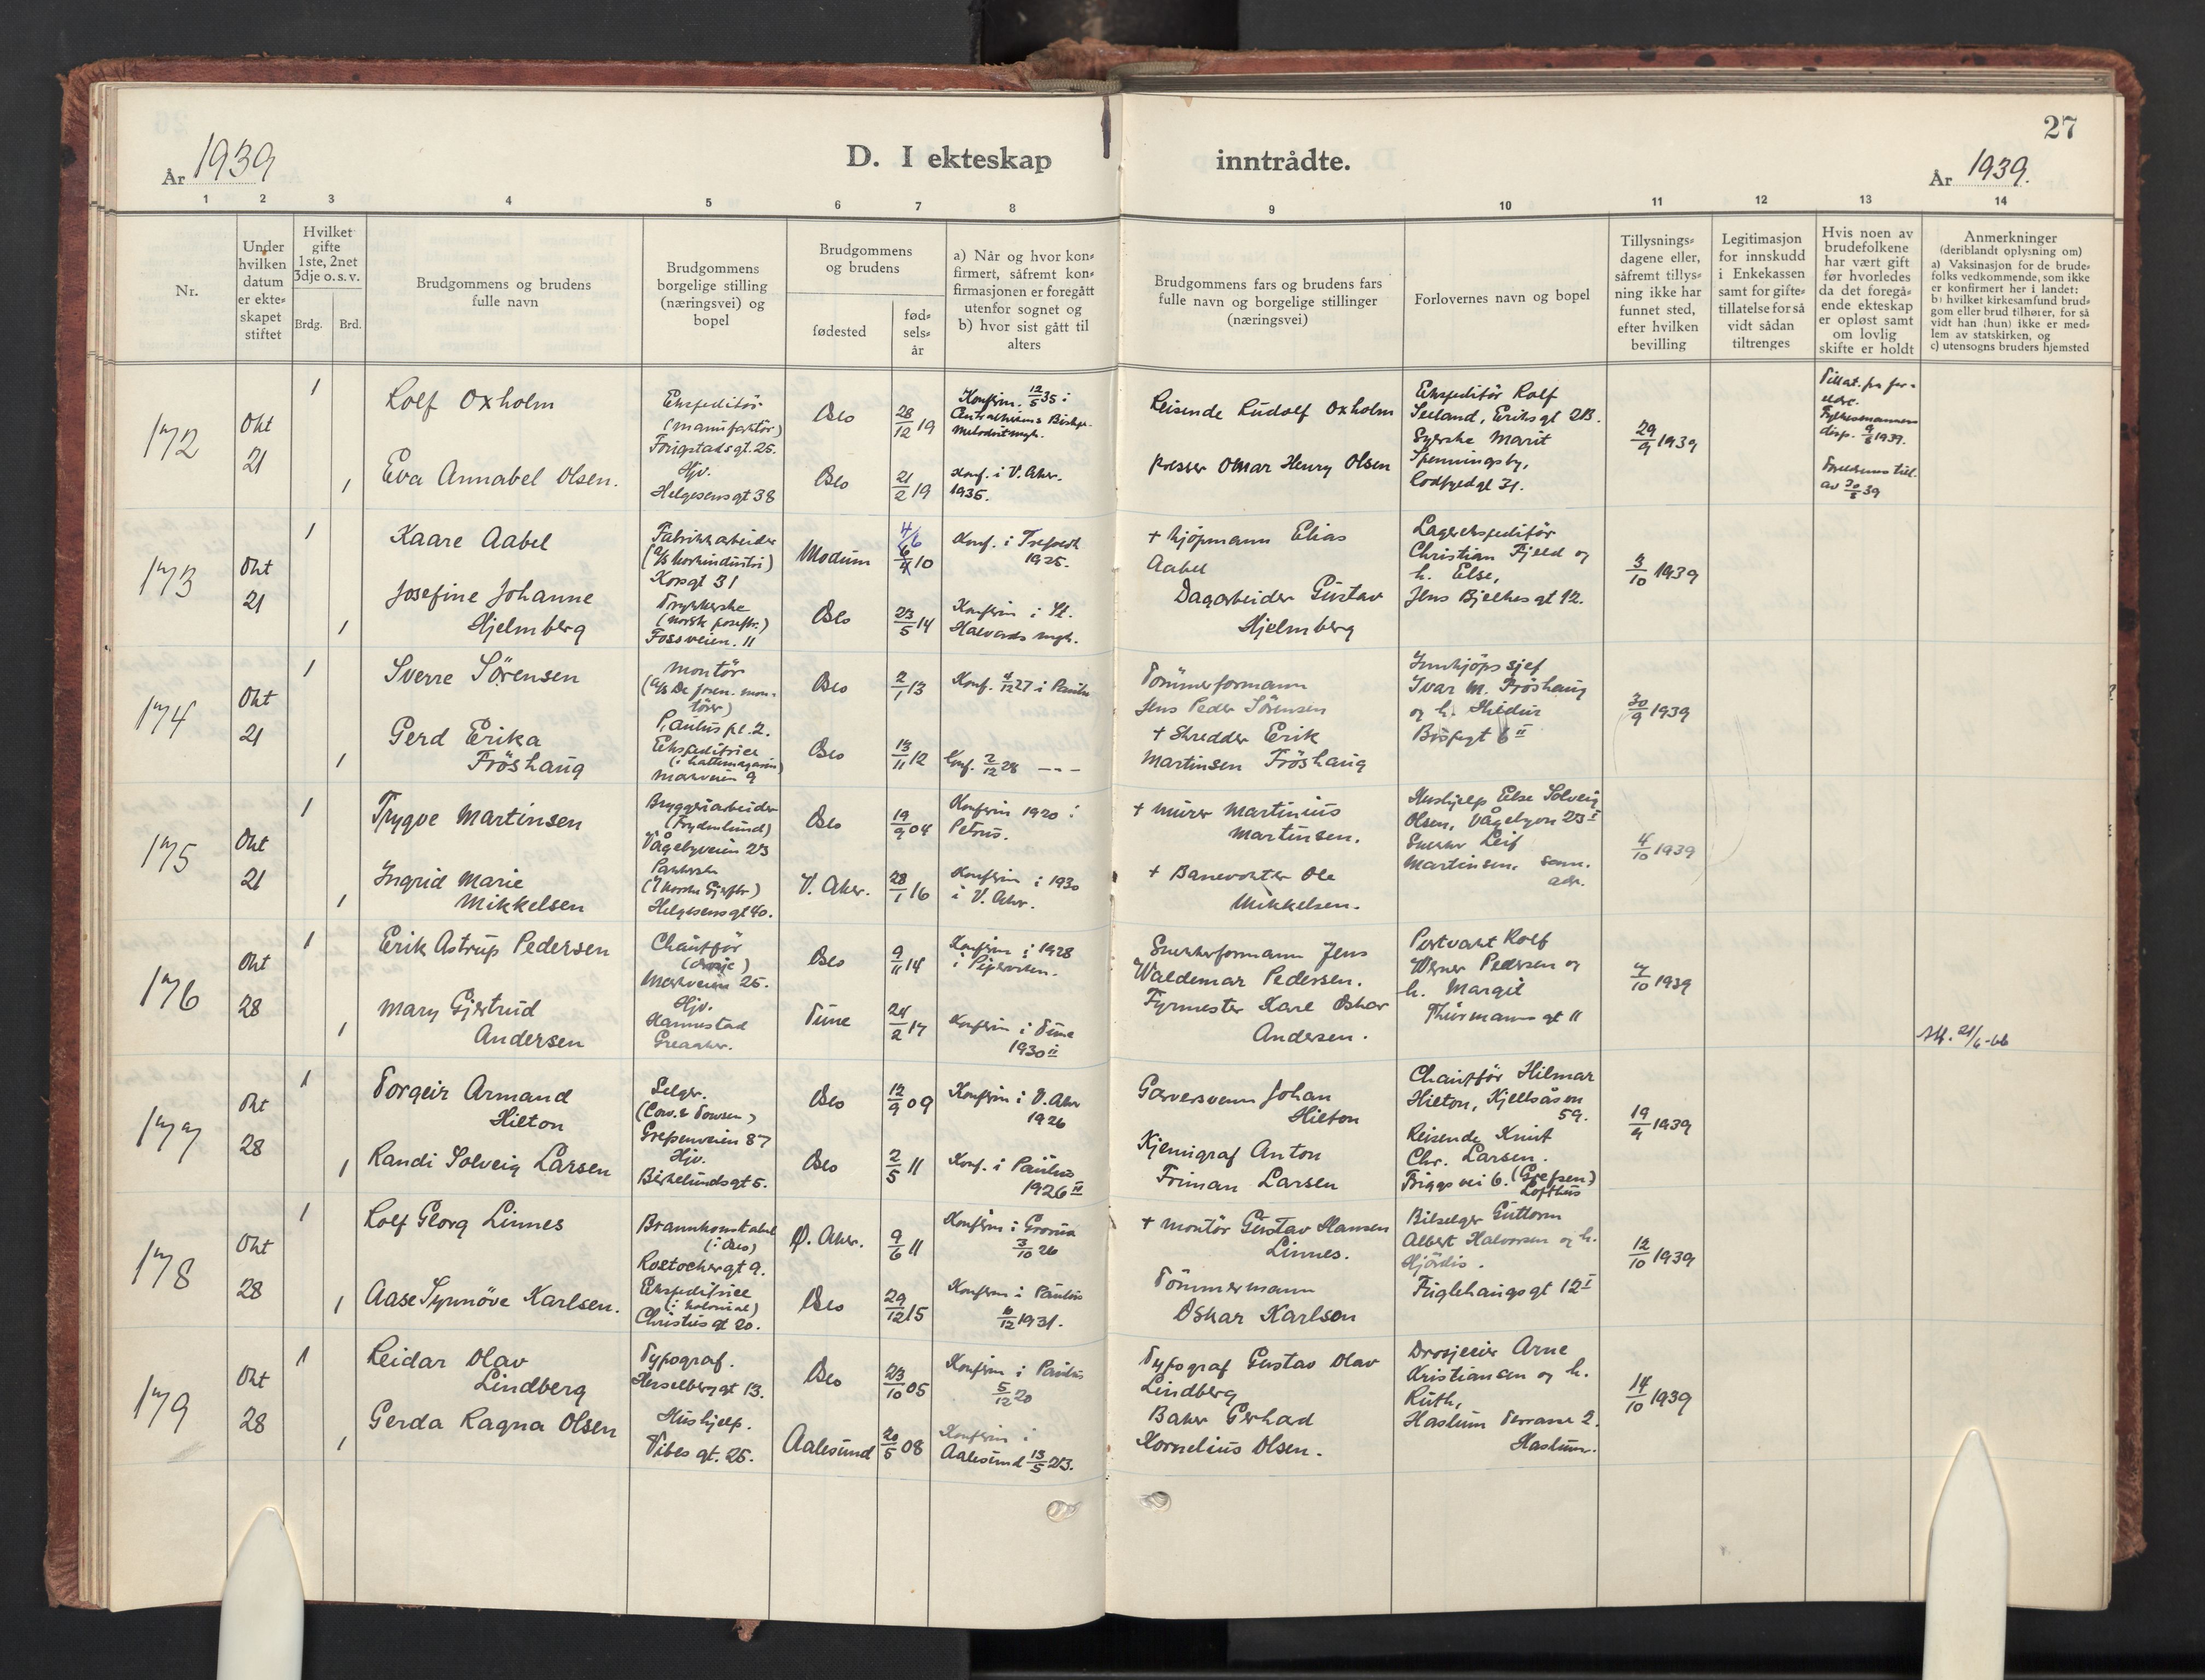 27
År 1939
D. I ekteskap inntrådte.
År 1939.
1 2 3 4 5 6 7 8 9 10 11 12 13 14
Nr.
Under hvilken datum er ekte= skapet stiftet
Hvilket gifte 1ste, 2net 3dje o.s.v.
Brdg. Brd.
Brudgommens og brudens fulle navn
Brudgommens borgelige stilling (næringsvei) og bopel
Brudgommens og brudens
fødested
fød= sels= år
a) Når og hvor kon= firmert, såfremt kon= firmasjonen er foregått utenfor sognet og b) hvor sist gått til alters
Brudgommens fars og brudens fars fulle navn og borgelige stillinger (næringsvei)
Forlovernes navn og bopel
Tillysnings= dagene eller, såfremt tillys= ning ikke har funnet sted, efter hvilken bevilling
Legitimasjon for innskudd i Enkekassen samt for gifte= tillatelse for så vidt sådan tiltrenges
Hvis noen av brudefolkene har vært gift før hvorledes da det foregå= ende ekteskap er opløst samt om lovlig skifte er holdt
Anmerkninger (deriblandt oplysning om) a) Vaksinasjon for de brude= folks vedkommende, som ikke er konfirmert her i landet: b) hvilket kirkesamfund brud= gom eller brud tilhører, for så vidt han (hun) ikke er med= lem av statskirken, og c) utensogns bruders hjemsted
172
Okt 21
1 Rolf Oxholm
Ekspeditör (manufaktör)
Oslo 28/12 19
Konfirm. 12/5 35 i
Reisende Rudolf Oxholm
Ekspeditör Rolf Seeland, Eriks gt 2B.
Syerske Marit
29/9 1939
1 Eva Annabel Olsen.
Hjv.
Helgesens gt 38
Oslo 21/2 19
Konf. i V. Aker. 1935.
Presser Omar Henry Olsen
173
Okt 21
1 Kaare Aabel
Fabrikkarbeider
Korsgt 31
Modum 4/6 10
Konf. i 1925.
+ kjöpmann Elias Aabel
Lagerekspeditör Christian Fjeld og h. Else,
Jens Bjelkes gt 12.
3/10 1939
1 Josefine Johanne Hjelmberg
Fossveien. 11
Oslo 23/5 14
Konfirm i St. Halvards mgh.
Dagarbeider Gustav Hjelmberg
174
Okt 21
1 Sverre Sörensen
Montör
Paulus pl. 2.
Oslo 2/1 13
Konf. 4/12 27 i Paulus
Tömmerformann Jens Peder Sörensen
Innkjöpssjef Ivar M. Fröshaug og h.
30/9 1939
1 Gerd Erika Fröshaug
Ekspeditrice
Markveien 9
Oslo 13/11 12
Konf. 2/12 28 - - -
+ Skredder Erik Martinsen Fröshaug
175
Okt 21
1 Trygve Martinsen
Bryggeriarbeider (Frydenlund)
Vågebyveien 23
Oslo 19/9 04
Konfirm 1920 i Petrus.
+ murer Martinius Martinsen.
Hushjelp Else Solveig Olsen, Vågebyvn 23 I
Snekker Leif Martinsen. samm. adr.
4/10 1939
1 Ingrid Marie Mikkelsen
Pakkerske
Helgesens gt 40.
V. Aker. 28/1 16
Konfirm i 1930 i V. Aker.
+ Banevokter Ole Mikkelsen.
176
Okt 28
1 Erik Astrup Pedersen
Chaufför (drosje)
Markveien 25.
Oslo 9/11 14
Konfirm i 1928 i Piperviken.
Snekkerformann Jens Waldemar Pedersen.
Portvakt Rolf Werner Pedersen og h. Margit
Thurmanns gt 11
7/10 1939
1 Mary Gjertrud Andersen
Hjv.
Hannestad Greaaker.
Tune 24/2 17
Konfirm i Tune 1930 II
Fyrmester Karl Oskar Andersen.
177
Okt 28
1 Torgeir Armand Hilton
Selger.
Grefsenveien 87
Oslo 12/9 09
Konfirm i V. Aker 1926
Garversvenn Johan Hilton
Chaufför Hilmar Hilton, Kjellsåsvn 59.
Reisende Knut Chr. Larsen.
Triggs vei 6. (Grefsen) Lofthus
19/9 1939
1 Randi Solveig Larsen
Hjv.
Birkelunds gt 5.
Oslo 2/5 11
Konf. i Paulus 1926 II
Kjemigraf Anton Friman Larsen
178
Okt 28
1 Rolf Georg Linnes
Brannkonstabel (i Oslo)
Rostockergt 9.
Ø. Aker. 9/6 11
Konfirm i Grorud 3/10 26
+ montör Gustav Hansen Linnes.
Bilselger Guttorm Albert Halvorsen og h. Hjördis.
Fuglehaugs gt 12 I
12/10 1939
1 Aase Synnöve Karlsen.
Ekspeditrice (i kolonial)
Christies gt 20.
Oslo 29/12 15
Konfirm i Paulus 6/12 1931.
Tömmermann Oskar Karlson
179
Okt 28
1 Reidar Olav Lindberg
Typograf.
Hesselberg gt 13.
Oslo 23/10 05
Konfirm i Paulus 5/12 20
Typograf Gustav Olav Lindberg
Drosjeeier Arne Kristiansen og h. Ruth,
Haslum Terrasse 2. Haslum.
14/10 1939
1 Gerda Ragna Olsen
Hushjelp.
Vibes gt. 25.
Aalesund 20/5 08
Konfirm i Aalesund 13/5 23.
Baker Gerhard Kornelius Olsen.